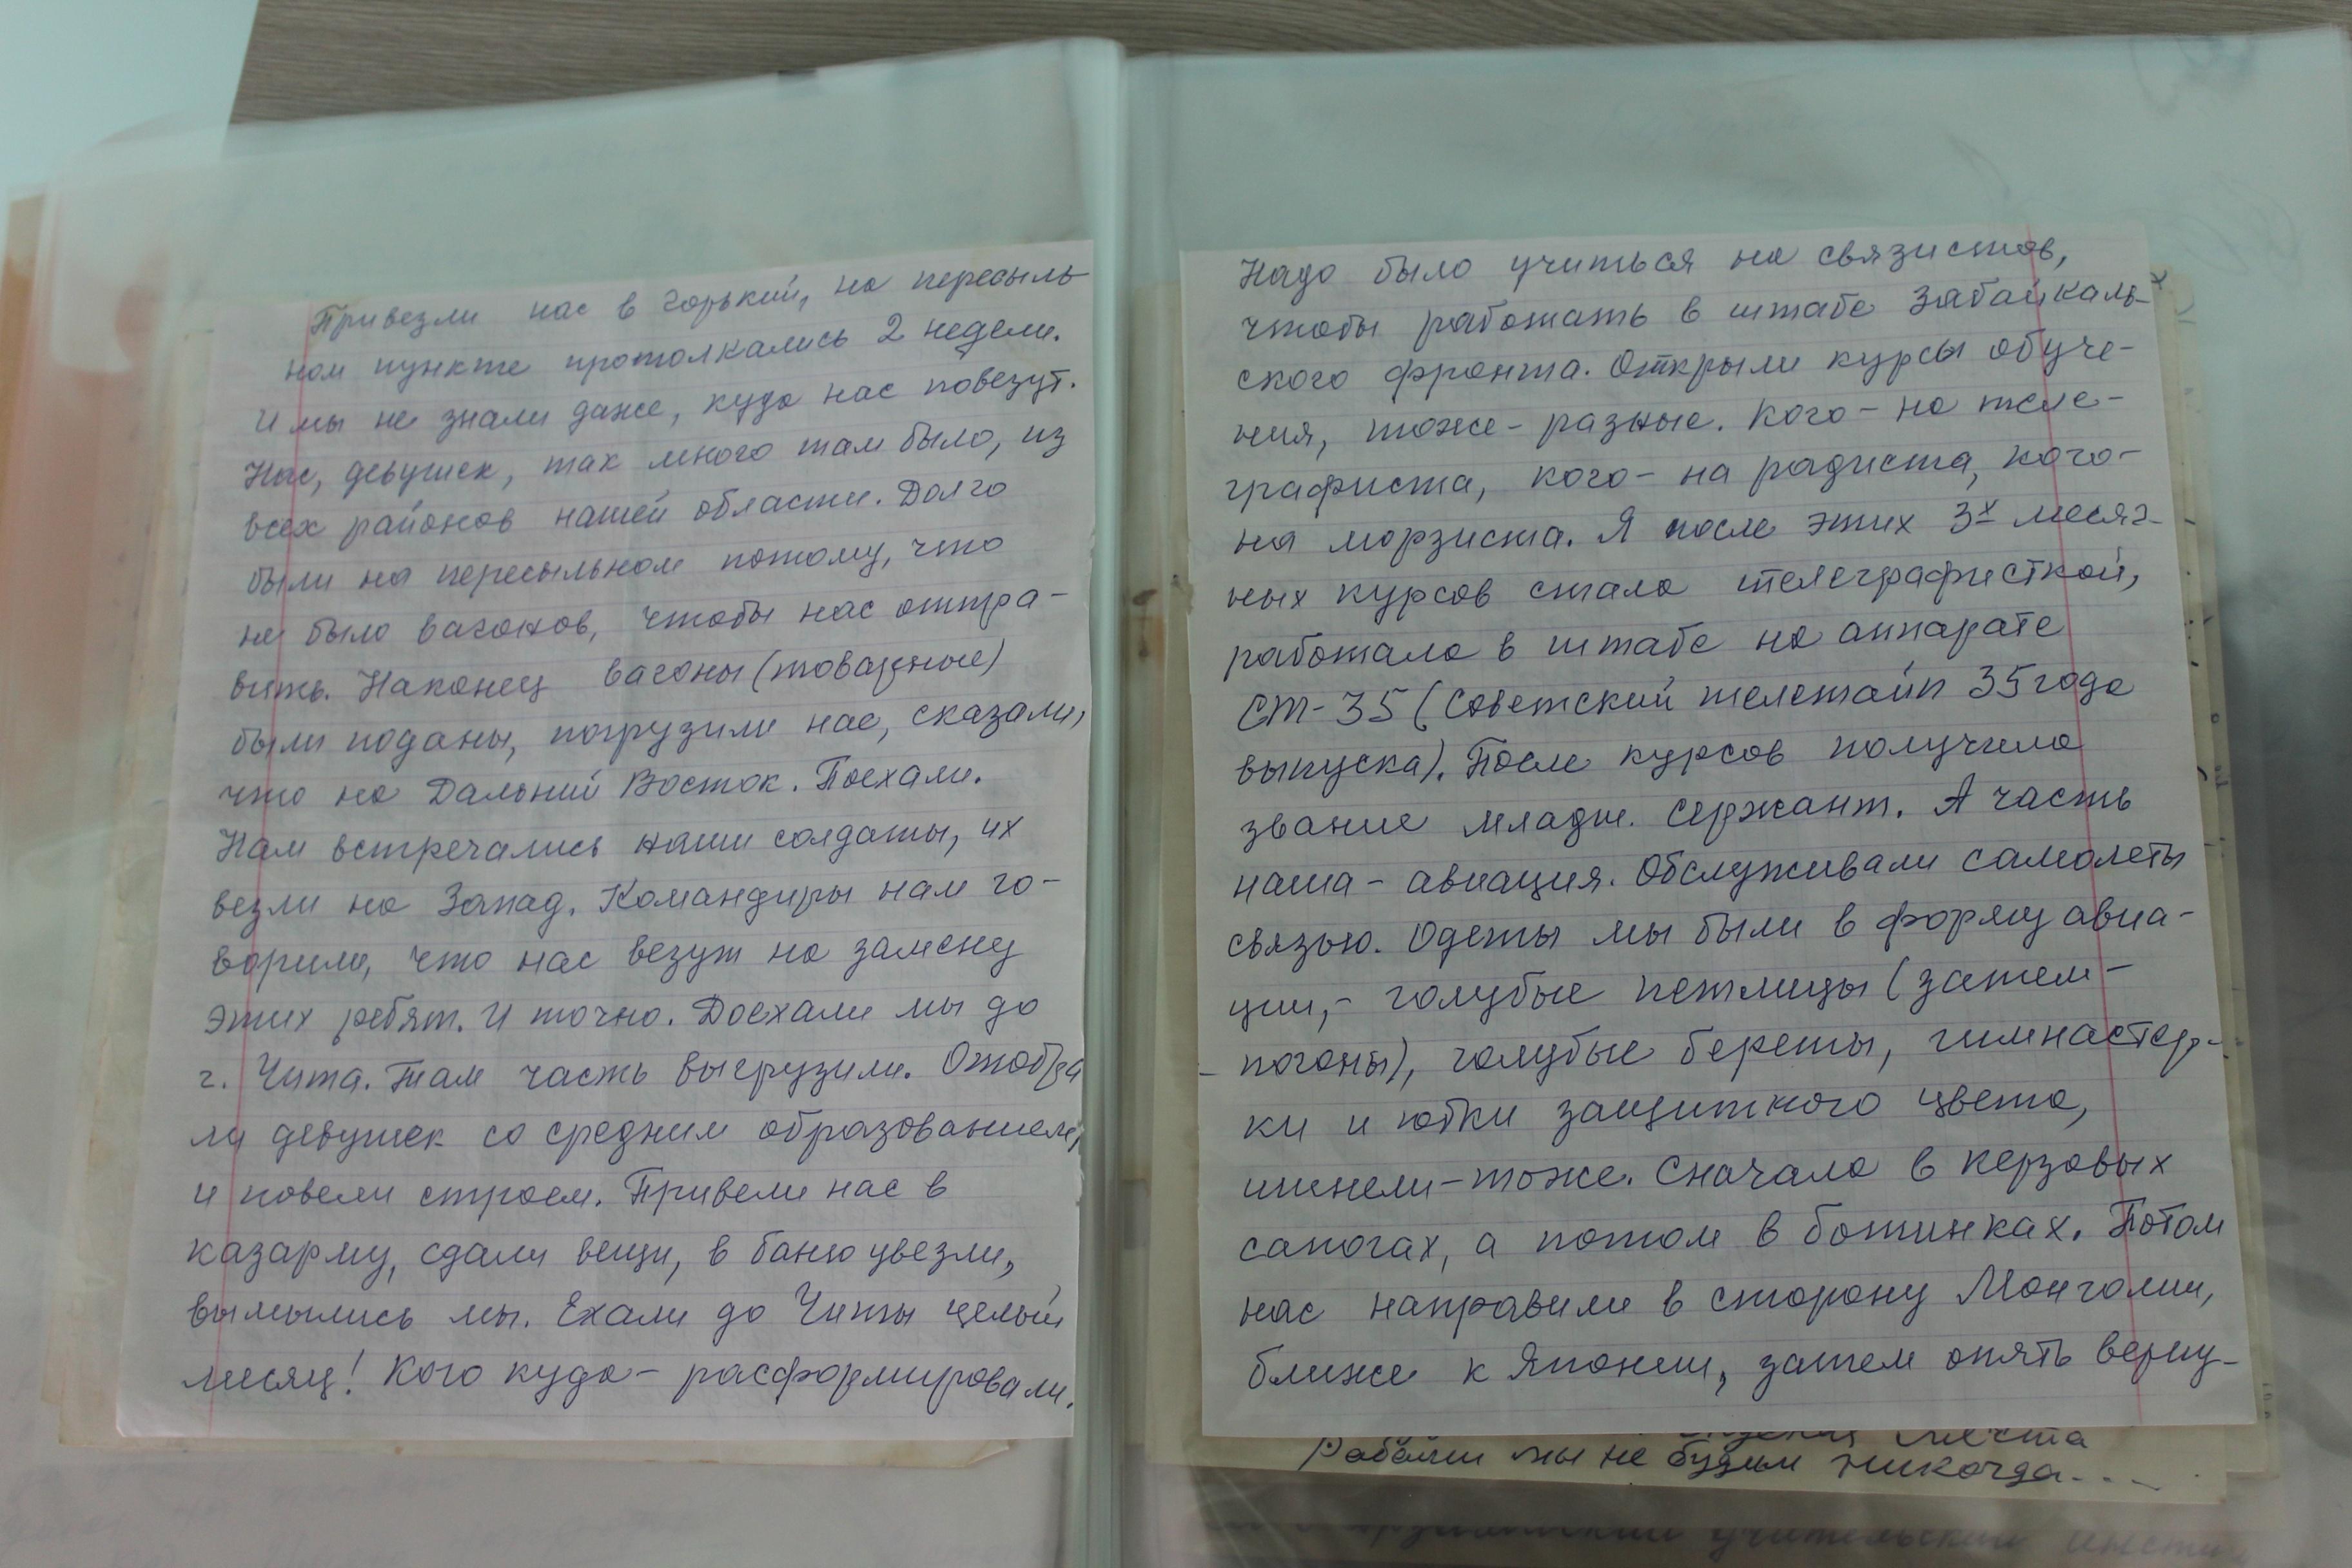 Привезли нас в Горький, на пересыль-
ном пункте протолкались 2 недели.
И мы не знали даже, куда нас повезут.
Нас, девушек, так много там было, из
всех районов нашей области. Долго
были на пересыльном потому, что
не было вагонов, чтобы нас отпра-
вить. Наконец вагоны (товарные)
были поданы, погрузили нас, сказали,
что на Дальний Восток. Поехали.
Нам встречались наши солдаты, их
везли на Запад. Командиры нам го-
ворили, что нас везут на замену
этих ребят. И точно. Доехали мы до
г. Чита. Там часть выгрузили. Отобра
ли девушек со средним образованием,
и повели строем. Привели нас в
казарму, сдали вещи, в баню увезли,
вымылись мы. Ехали до Читы целый
месяц! Кого куда - расформировали.
Надо было учиться на связистов,
чтобы работать в штабе Забайкаль-
ского фронта. Открыли курсы обуче-
ния, тоже - разные. Кого - на теле-
графиста, кого - на радиста, кого -
на морзиста. Я после этих 3х месяч-
ных курсов стала телеграфисткой,
работала в штабе на аппарате
СТ-35 (Советский телетайп 35 года
выпуска). После курсов получила
звание младш. сержант. А часть
наша - авиация. Обслуживали самолеты
связью. Одеты мы были в форму авиа-
ции, - голубые петлицы (затем -
- погоны), голубые береты, гимнастер-
ки и юбки защитного цвета,
шинели - тоже. Сначала в керзовых
сапогах, а потом в ботинках. Потом
нас направили в сторону Монголии,
ближе к Японии, затем опять верну-
места
Рабами мы не будем никогда...
учительский инсти